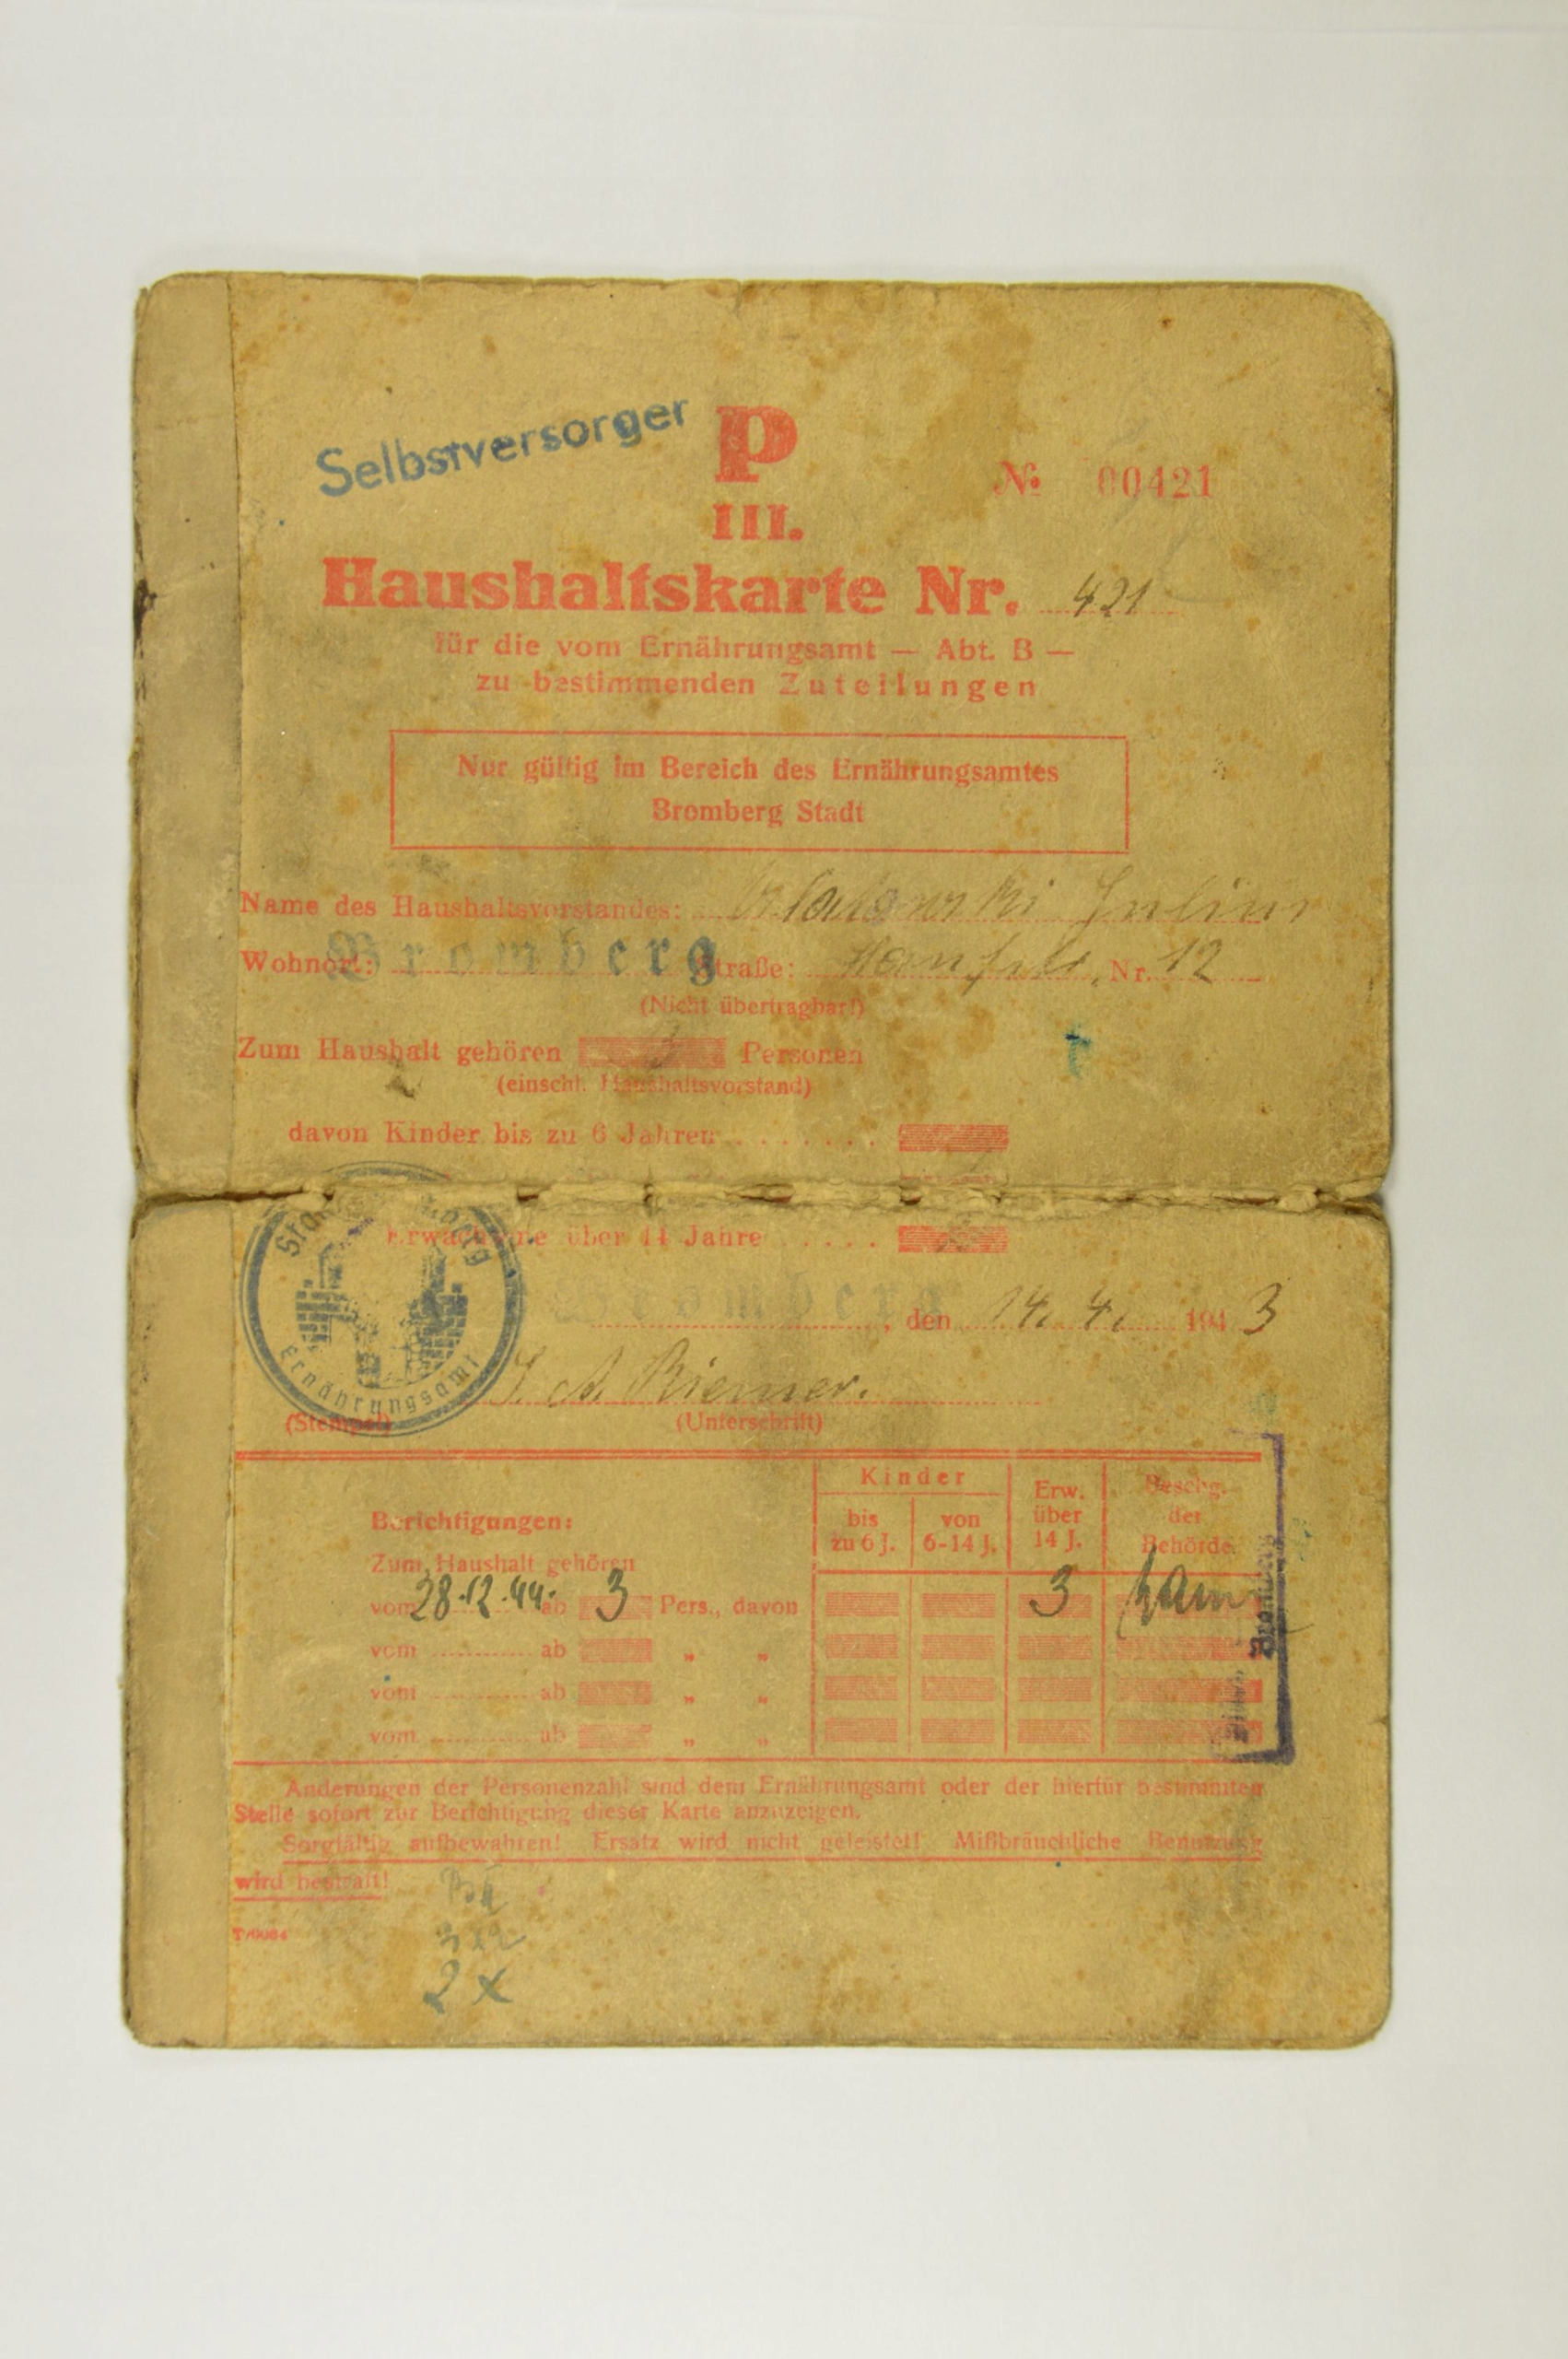 Selbstversorger
P
№ 00421
III.
Haushaltskarte Nr. 421
für die vom Ernährungsamt — Abt. B —
zu bestimmenden Zuteilungen
Nur gültig im Bereich des Ernährungsamtes
Bromberg Stadt
Name des Haushaltsvorstandes: Julius
Wohnort: Bromberg Straße: Nr. 12
(Nicht übertragbar!)
Zum Haushalt gehören 3 Personen
(einschl. Haushaltsvorstand)
davon Kinder bis zu 6 Jahren . . . . . . .
Erwachsene über 14 Jahre . . . . .
Bromberg, den 14. 4. 1943
Ernährungsamt
I. A. Riemer.
(Stempel) (Unterschrift)
Berichtigungen:
Kinder
bis zu 6 J.
von 6-14 J.
Erw. über 14 J.
Beschg. der Behörde
Zum Haushalt gehören
vom 28.12.44. ab 3 Pers., davon 3
vom ............ ab „ „
vom ............ ab „ „
vom ............ ab „ „
Bromberg
Änderungen der Personenzahl sind dem Ernährungsamt oder der hierfür bestimmten
Stelle sofort zur Berichtigung dieser Karte anzuzeigen.
Sorgfältig aufbewahren! Ersatz wird nicht geleistet! Mißbräuchliche Benutzung
wird bestraft!
2 x